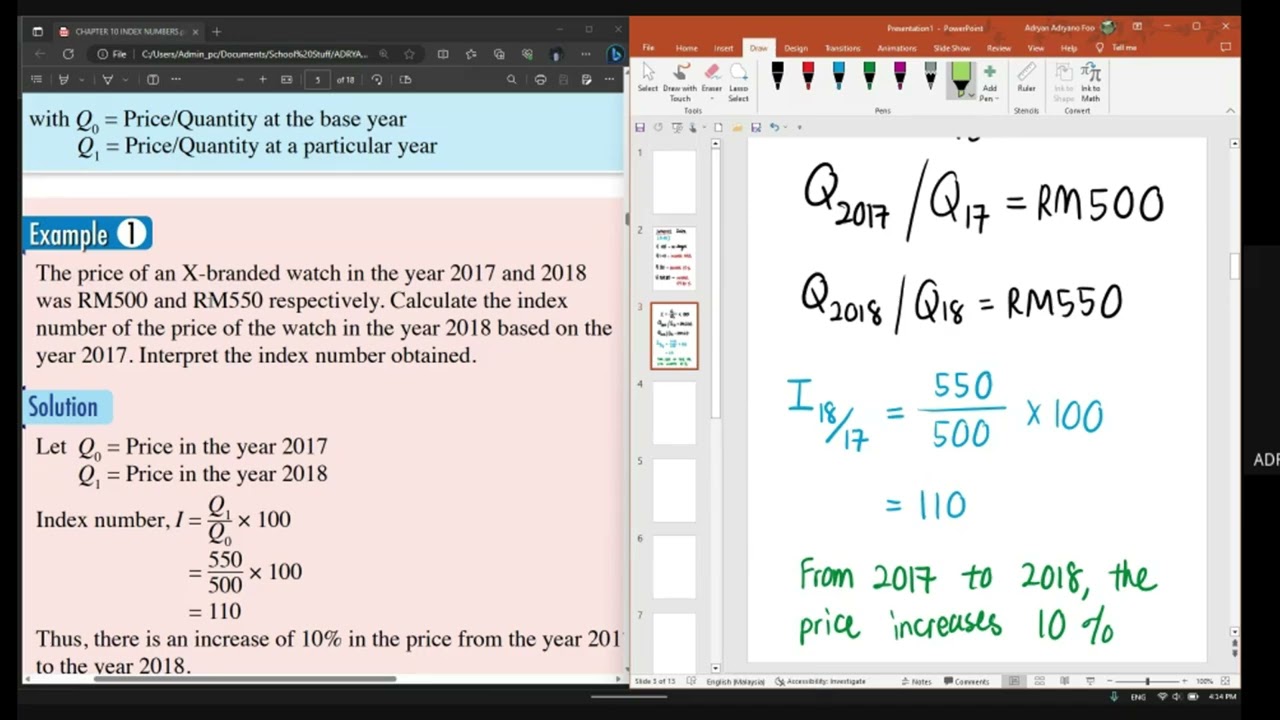 CHAPTER 10 INDEX NUMBERS.p
File
C:/Users/Admin_pc/Documents/School%20Stuff/ADRYA...
5 of 18
with Q0 = Price/Quantity at the base year
Q1 = Price/Quantity at a particular year
Example 1
The price of an X-branded watch in the year 2017 and 2018
was RM500 and RM550 respectively. Calculate the index
number of the price of the watch in the year 2018 based on the
year 2017. Interpret the index number obtained.
Solution
Let Q0 = Price in the year 2017
Q1 = Price in the year 2018
Index number, I = Q1/Q0 × 100
= 550/500 × 100
= 110
Thus, there is an increase of 10% in the price from the year 201
to the year 2018.
Presentation1 - PowerPoint
Adryan Adryano Foo
File Home Insert Draw Design Transitions Animations Slide Show Review View Help Tell me
Select Draw with Touch Eraser Lasso Select Add Pen Ruler Ink to Shape Ink to Math
Tools Pens Stencils Convert
1
2
3
4
5
6
7
Q2017 / Q17 = RM500
Q2018 / Q18 = RM550
I18/17 = 550/500 × 100
= 110
From 2017 to 2018, the
price increases 10 %
Slide 3 of 13 English (Malaysia) Accessibility: Investigate Notes Comments 100%
ENG 4:14 PM
ADR